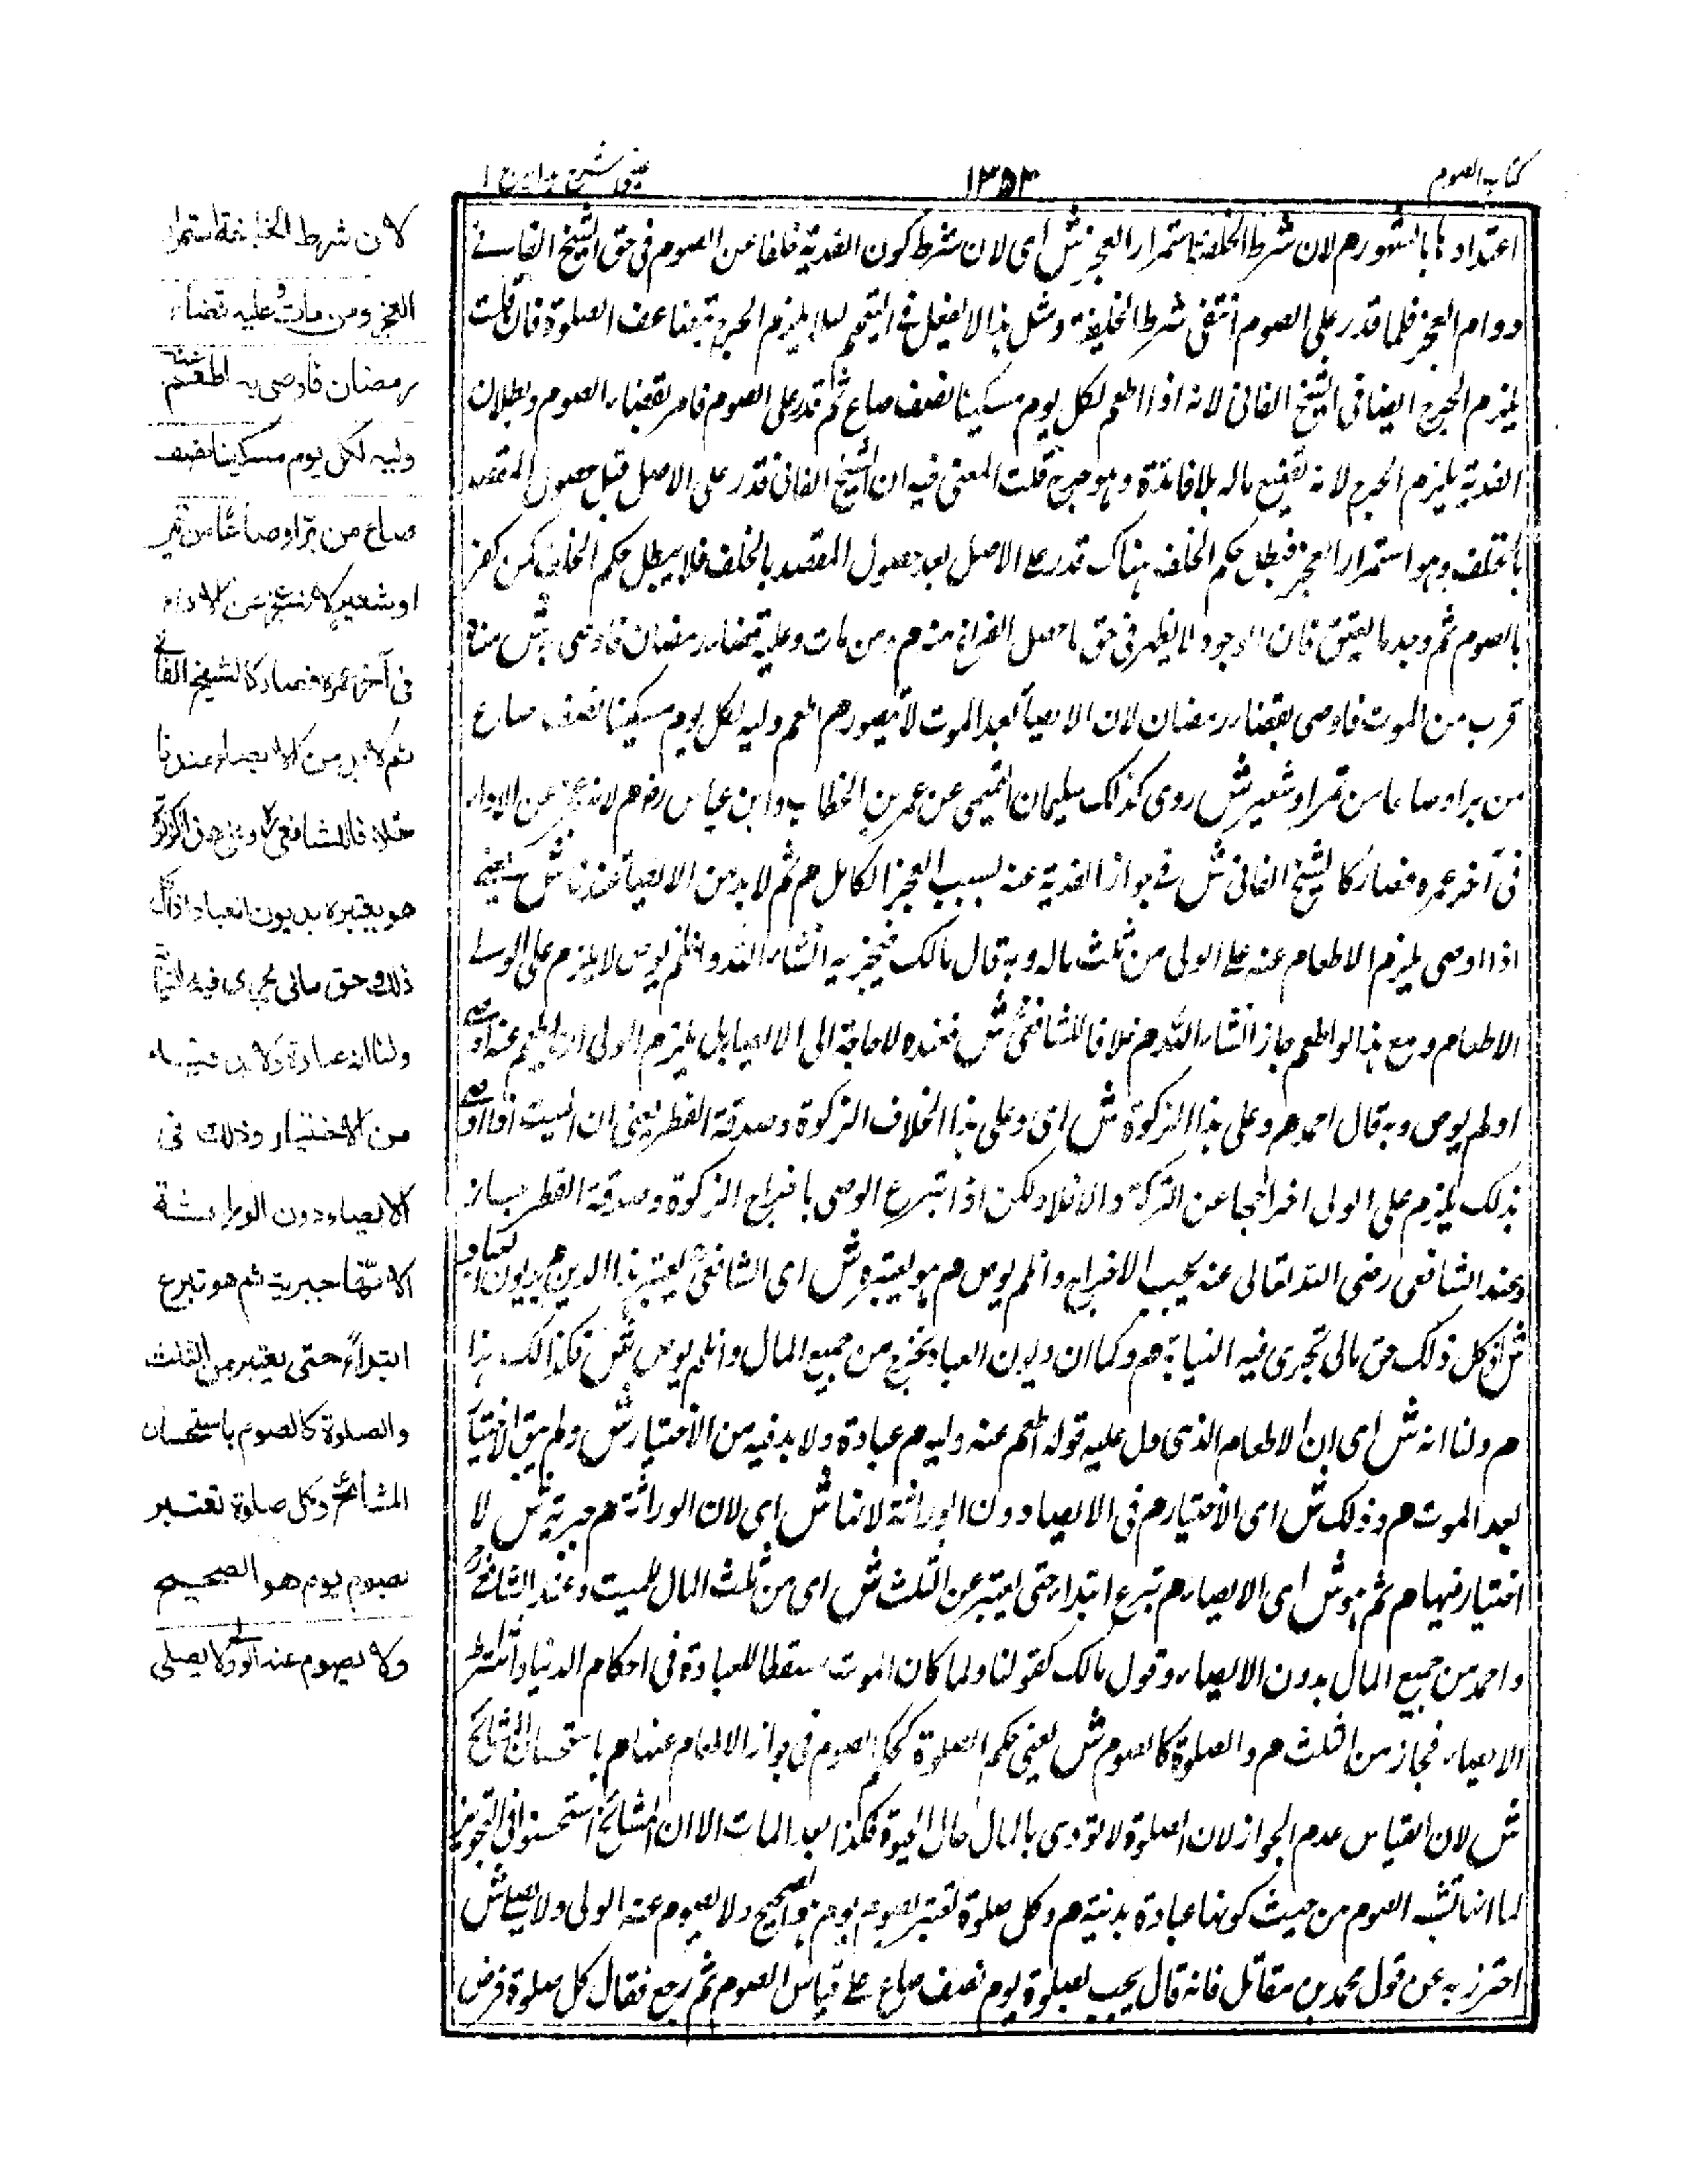 كتاب الصوم
١٣٥٣
عينى شرح هدايه ج ١
اعتدادها بالشهور م لان شرط الخلفية استمرار العجز ش اى لان شرط كون الفدية خلفا عن الصوم فى حق الشيخ الفانى
دوام العجز فلما قدر على الصوم انتفى شرط الخليفة ومثل هذا لا يفعل فى التيمم لئلا يلزم الحرج بتضاعف الصلوة فان قلت
يلزم الحرج ايضا فى الشيخ الفانى لانه اذا اطعم لكل يوم مسكينا نصف صاع ثم قدر على الصوم فامر بقضاء الصوم وبطلان
الفدية يلزم الحرج لانه تضييع ماله بلا فائدة وهو حرج قلت المعنى فيه ان الشيخ الفانى قدر على الاصل قبل حصول المقصد
بالخلف وهو استمرار العجز فبطل حكم الخلف هناك قدر على الاصل بعد حصول المقصد بالخلف فلا يبطل حكم الخلف كمن كفر
بالصوم ثم وجد ما يعتق فان الوجود لا يظهر فى حق ما حصل الفراغ منه م ومن مات وعليه قضاء رمضان فاوصى به ش معناه
قرب من الموت فاوصى بقضاء رمضان لان الايصاء بعد الموت لا يتصور م اطعم وليه لكل يوم مسكينا نصف صاع
من بر او صاعا من تمر او شعير ش روى كذلك سليمان التيمى عن عمر بن الخطاب وابن عباس رض م لانه عجز عن الاداء
فى آخر عمره فصار كالشيخ الفانى ش فى جواز الفدية عنه بسبب العجز الكامل م ثم لا بد من الايصاء عندنا ش يعنى
اذا اوصى يلزم الاطعام عنه على الولى من ثلث ماله وبه قال مالك فيجزيه انشاء الله وانلم يوص لا يلزم على الولى
الاطعام ومع هذا لو اطعم جاز انشاء الله م خلافا للشافعى ش فعنده لا حاجة الى الايصا بل يلزم الولى ان يطعم عنه اوصى
اولم يوص وبه قال احمد م وعلى هذا الزكوة ش اى وعلى هذا الخلاف الزكوة وصدقة الفطر يعنى ان الميت اذا اوصى
بذلك يلزم على الولى اخراجها عن التركة والا فلا ولكن اذا تبرع الوصى باخراج الزكوة وصدقة الفطر جاز
وعند الشافعى رضى الله تعالى عنه يجب الاخراج وانلم يوص م هو يعتبره ش اى الشافعى يعتبر هذا الدين م بديون العباد
ش اذ كل ذلك حق مالى تجرى فيه النيابة م وكما ان ديون العباد تخرج من جميع المال وانلم يوص ش فكذالك هذا
م ولنا انه ش اى ان الاطعام الذى دل عليه قوله اطعم عنه وليه م عبادة ولا بد فيه من الاختيار ش ولم يبق الاختيار
بعد الموت م وذلك ش اى الاختيار م فى الايصاء دون الوراثة لانها ش اى لان الوراثة م جبرية ش لا
اختيار فيها م ثم هو ش اى الايصاء م تبرع ابتداء حتى يعتبر عن الثلث ش اى من ثلث المال للميت وعند الشافعى
واحمد من جميع المال بدون الايصاء وقول مالك كقولنا ولما كان الموت مسقطا للعبادة فى احكام الدنيا اشترط
الايصاء فجاز من الثلث م والصلوة كالصوم ش يعنى حكم الصلوة كحكم الصوم فى جواز الاطعام عنها م باستحسان المشائخ
ش لان القياس عدم الجواز لان الصلوة لا تؤدى بالمال حال الحيوة فكذا بعد الممات الا ان المشائخ استحسنوا فى التجويز
لما انها تشبه الصوم من حيث كونها عبادة بدنية م وكل صلوة تعتبر بصوم يوم هو الصحيح ولا يصوم عنه الولى ولا يصلى ش
احترز به عن قول محمد بن مقاتل فانه قال يجب لصلوة يوم نصف صاع على قياس الصوم ثم رجع فقال كل صلوة فرض
لان شرط الخليفة استمرار
العجز ومن مات وعليه قضاء
رمضان فاوصى به اطعم عنه
وليه لكل يوم مسكينا نصف
صاع من بر او صاعًا من تمر
او شعير لانه عجز عن الاداء
فى آخر عمره فصار كالشيخ الفانى
ثم لا بد من الايصاء عندنا
خلافا للشافعى وعلى هذا الزكوة
هو يعتبره بديون العباد اذ كل
ذلك حق مالى يجرى فيه النيابة
ولنا انه عبادة ولا بد فيه
من الاختيار وذلك فى
الايصاء دون الوراثة
لانّها جبرية ثم هو تبرع
ابتداءً حتى يعتبر من الثلث
والصلوة كالصوم باستحسان
المشائخ وكل صلوة تعتبر
بصوم يوم هو الصحيح
ولا يصوم عنه الولى ولا يصلى